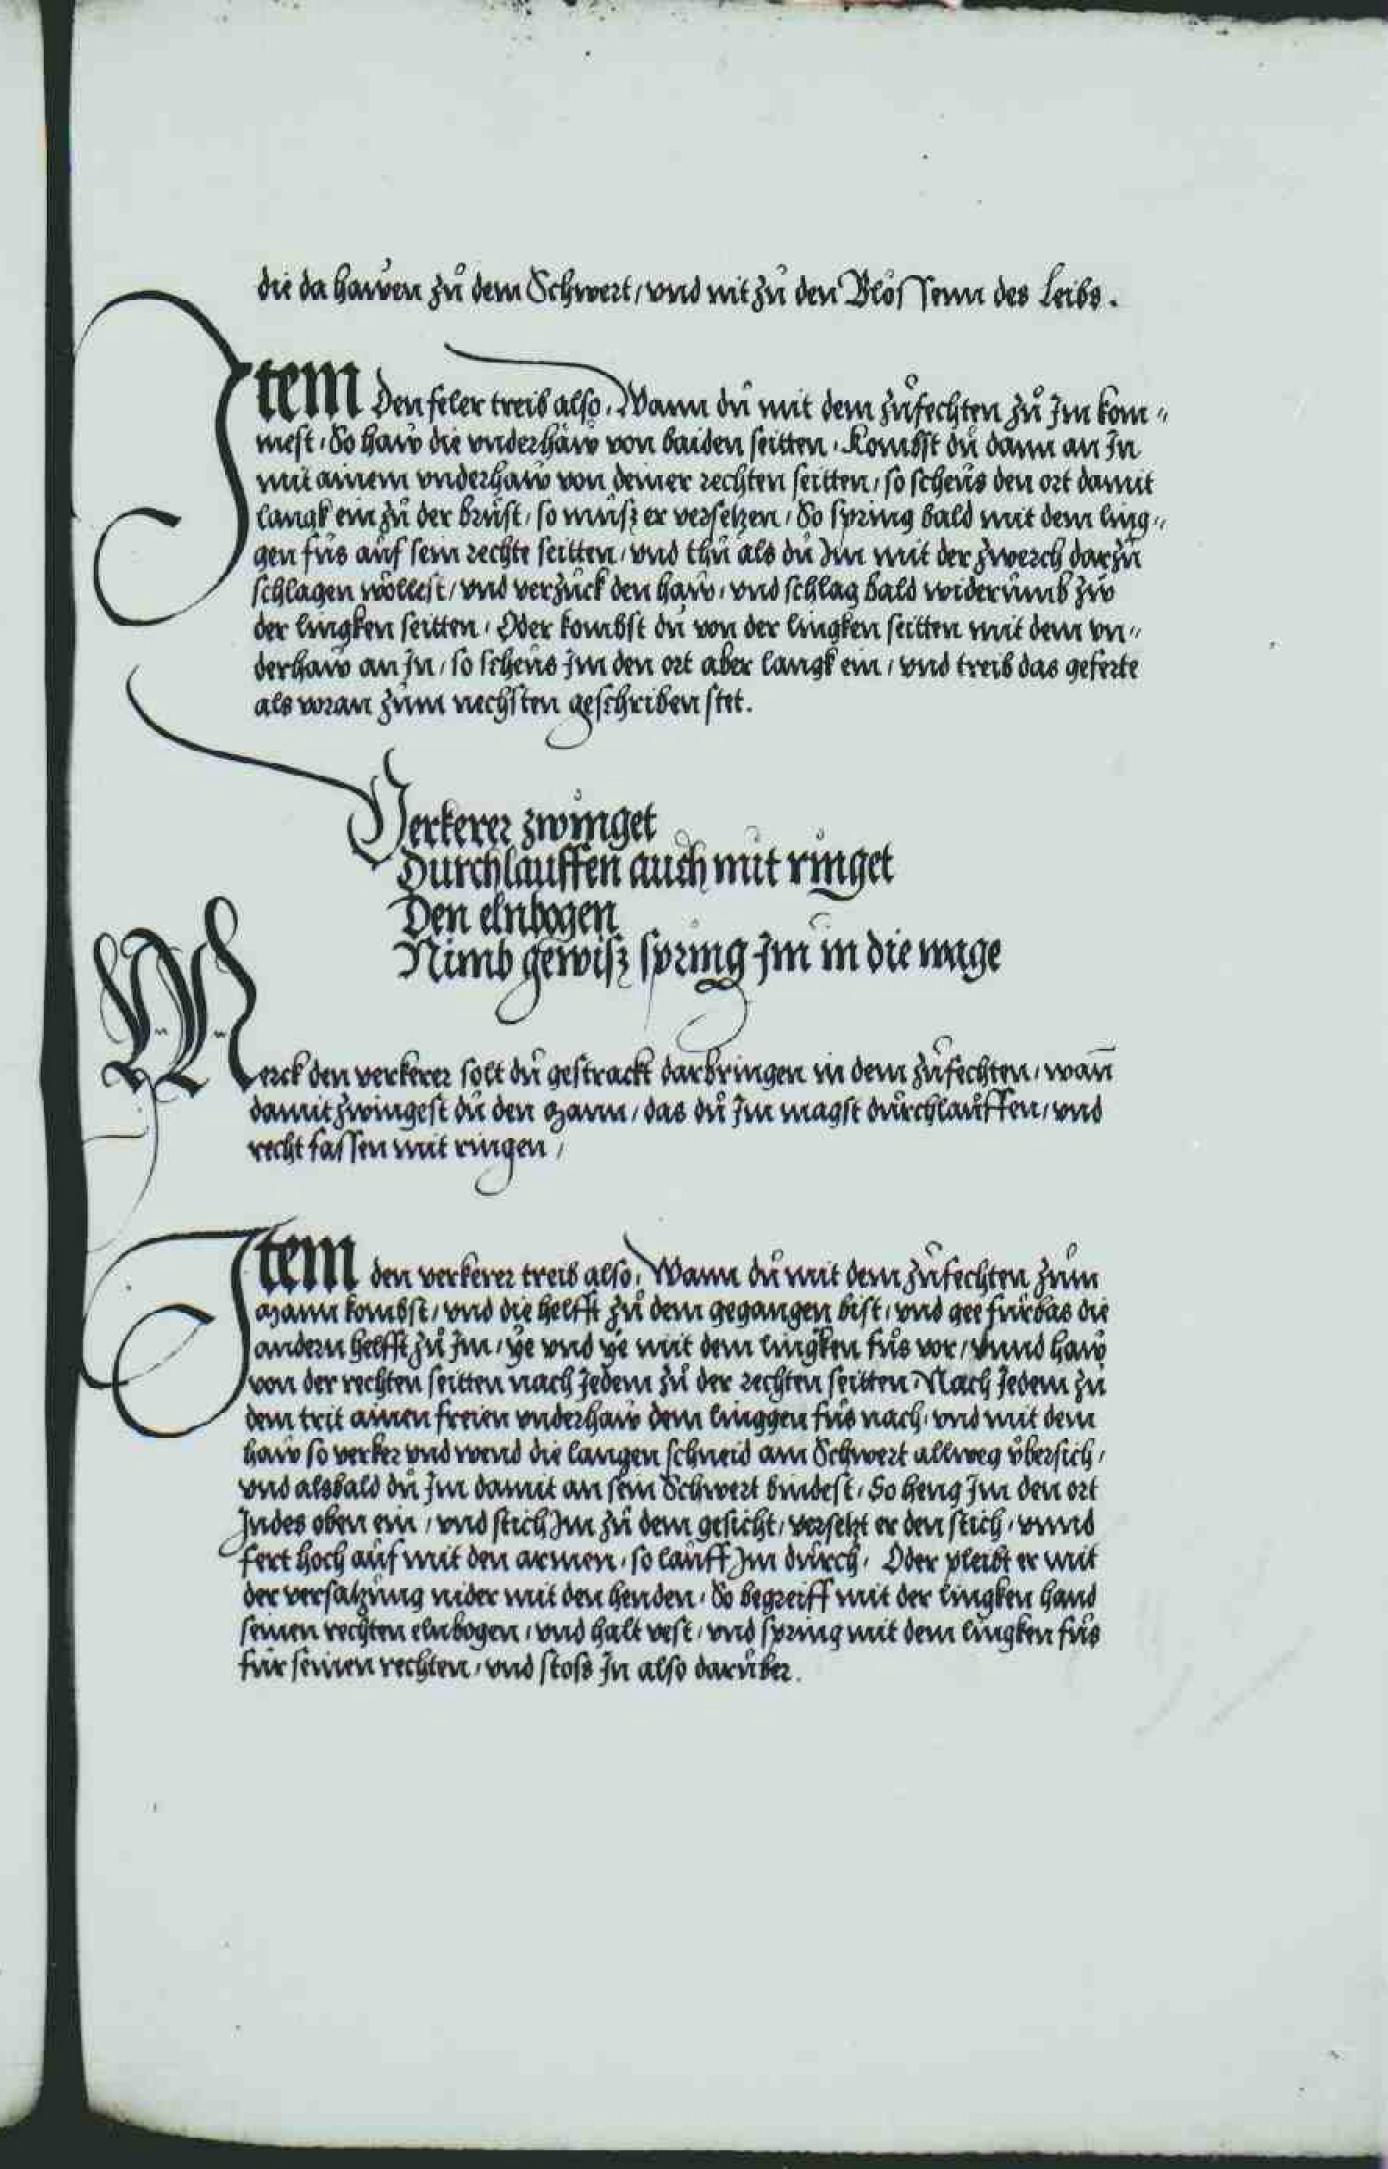 die da hawen zů dem Schwert / vnd nit zů den Blössenn des Leibs .
Item Den feler treib also / Wann dů mit dem zůfechten zů Im kom„
mest / So haw die vnderhäw von baiden seitten / Kombst dů dann an In
mit ainem vnderhaw von deiner rechten seitten / so scheüs den ort damit
langk ein zů der brůst / so můsz er versetzen / So spring bald mit dem ling„
gen fůs aůf sein rechte seitten / vnd thů als dů Im mit der zwerch darzů
schlagen wöllest / vnd verzůck den haw / vnd schlag bald widerůmb zw
der lingken seitten / Oder kombst dů von der lingken seitten mit dem vn„
derhaw an In / so scheüs Im den ort aber langk ein / vnd treib das geferte
als voran zům nechsten geschriben stet .
Verkerer zwinget
Durchlauffen auch mit ringet
Den elnbogen
Nimb gewisz spring Im in die wage
Merck den verkerer solt dů gestrackt darbringen in dem zůfechten / wañ
damit zwingest dů den Mann / das dů Im magst důrchlaůffen / vnd
recht fassen mit ringen /
Item den verkerer treib also / Wann dů mit dem zůfechten zům
Mann kombst / vnd die helfft zů dem gegangen bist / vnd gee fürbas die
andern helfft zů Im / ye vnd ye mit dem lingken fůs vor / vnnd haw
von der rechten seitten nach Jedem zů der rechten seitten / Nach Jedem zů
dem trit ainen freien vnderhaw dem linggen fůs nach / vnd mit dem
haw so verker vnd wend die langen schneid am Schwert allweg übersich /
vnd alsbald dů Im damit an sein Schwert bindest / So heng Im den ort
Indes oben ein / vnd stich Im zů dem gesicht / versetzt er den stich / vnnd
fert hoch aůf mit den armen / so laůff Im důrch / Oder pleibt er mit
der versatzůng nider mit den henden / So begreiff mit der lingken hand
seinen rechten elnbogen / vnd halt vest / vnd spring mit dem lingken fůs
für seinen rechten / vnd stoss In also darüber .